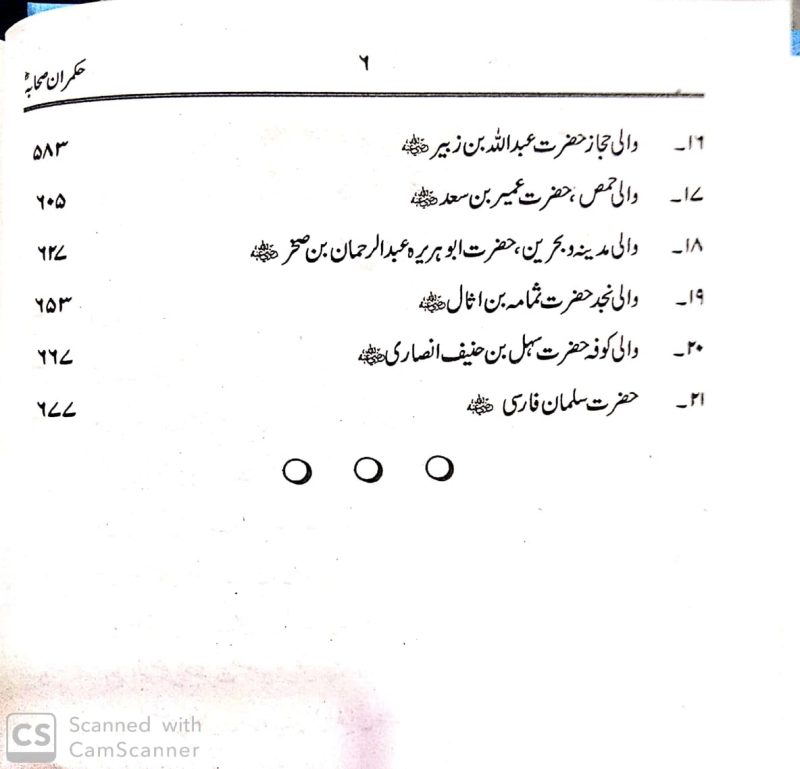 حکمران صحابہؓ
۶
۱۶۔ والی حجاز حضرت عبداللہ بن زبیر رضی اللہ عنہ ۵۸۳
۱۷۔ والی حمص، حضرت عمیر بن سعد رضی اللہ عنہ ۶۰۵
۱۸۔ والی مدینہ و بحرین، حضرت ابو ہریرہ عبدالرحمان بن صخر رضی اللہ عنہ ۶۲۷
۱۹۔ والی نجد حضرت ثمامہ بن اثال رضی اللہ عنہ ۶۵۳
۲۰۔ والی کوفہ حضرت سہل بن حنیف انصاری رضی اللہ عنہ ۶۶۷
۲۱۔ حضرت سلمان فارسی رضی اللہ عنہ ۶۷۷
CS Scanned with
CamScanner